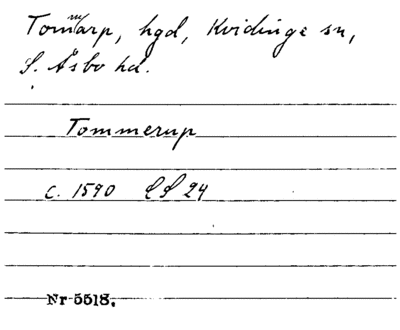 Tommarp, hgd, Kvidinge sn,
S. Åsbo hd.
Tommerup
c. 1590 LS 24
Nr 5518.